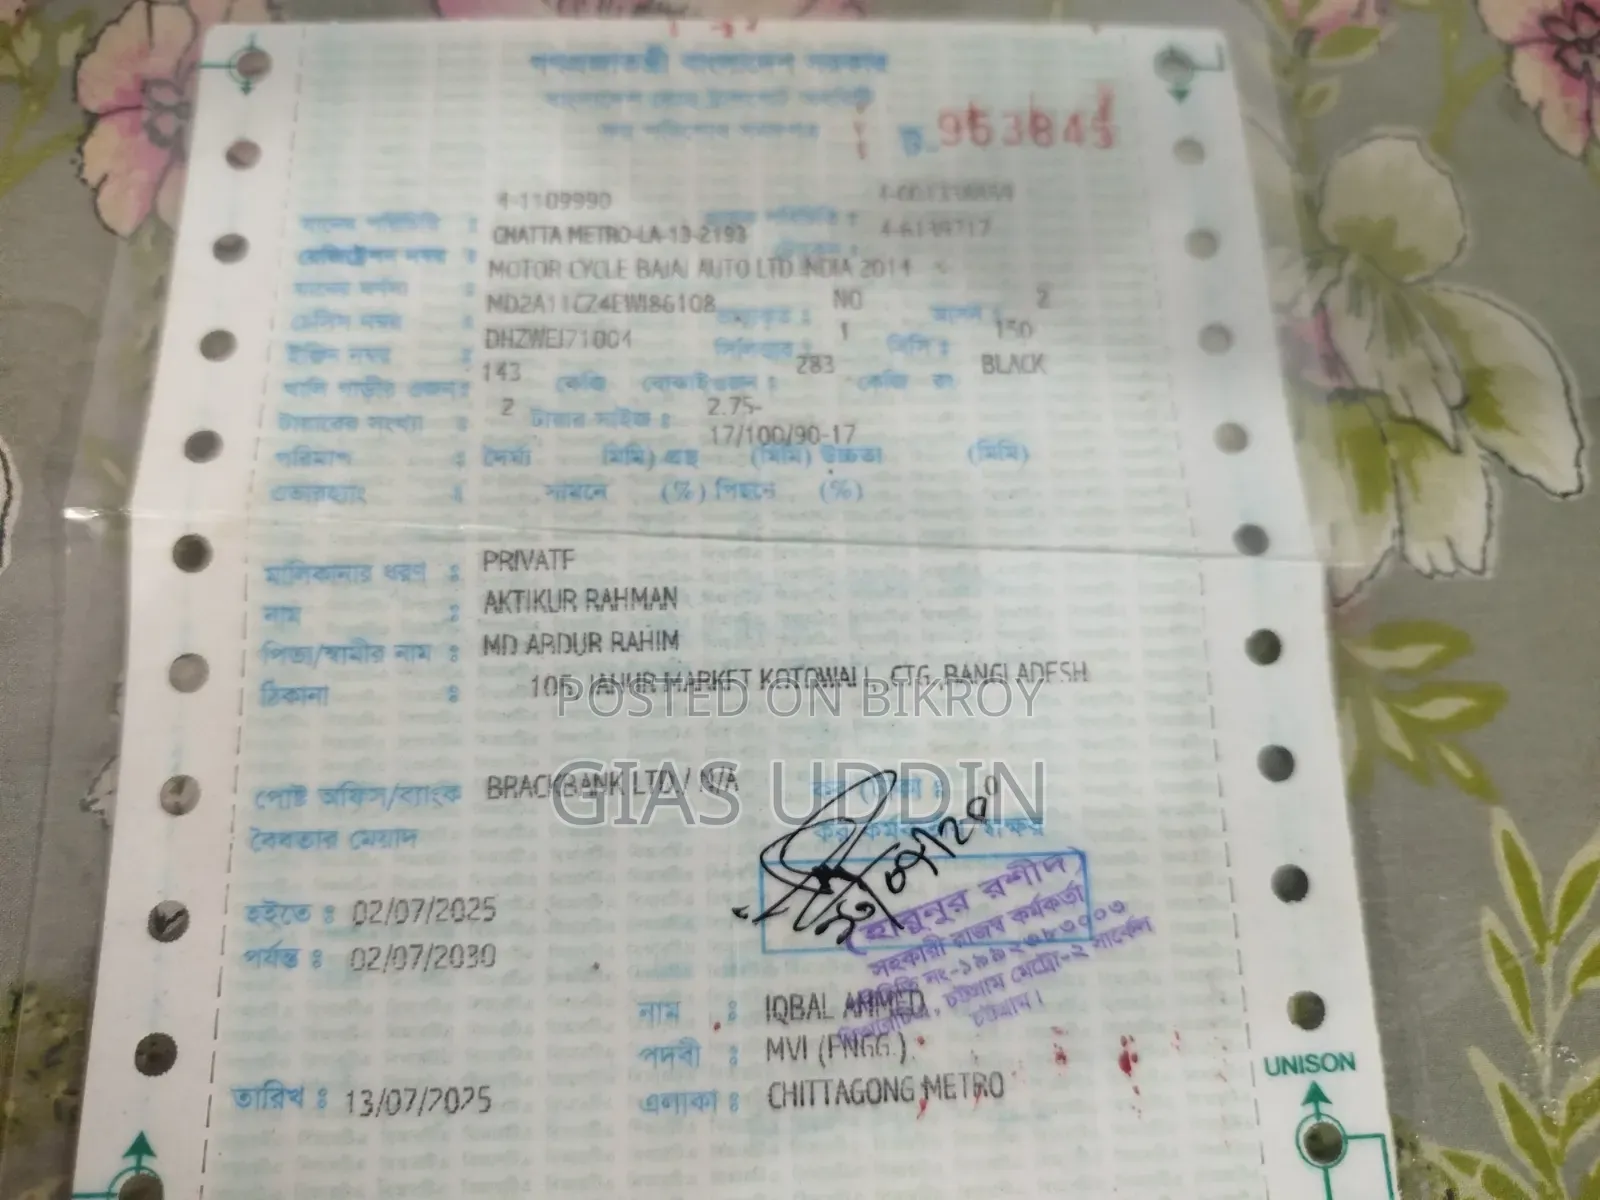 গণপ্রজাতন্ত্রী বাংলাদেশ সরকার
4-1109990
রেজিস্ট্রেশন নম্বর : CHATTA METRO-LA-13-2193
MOTOR CYCLE BAJAJ AUTO LTD INDIA 2014
চেসিস নম্বর : MD2A11CZ4EWI86108 NO 2
ইঞ্জিন নম্বর : DHZWEJ71004 সিলিন্ডার : 1 সিসি : 150
খালি গাড়ীর ওজন : 143 কেজি বোঝাই ওজন : 283 কেজি রং BLACK
টায়ারের সংখ্যা : 2 টায়ার সাইজ : 2.75-
17/100/90-17
পরিমাপ : দৈর্ঘ্য (মিমি) প্রস্থ (মিমি) উচ্চতা (মিমি)
ওভারহ্যাং : সামনে (%) পিছনে (%)
মালিকানার ধরণ : PRIVATE
নাম : AKTIKUR RAHMAN
পিতা/স্বামীর নাম : MD ABDUR RAHIM
ঠিকানা : MARKET KOTOWALI, CTG, BANGLADESH
POSTED ON BIKROY
GIAS UDDIN
পোষ্ট অফিস/ব্যাংক BRACKBANK LTD./ N/A
কর কর্মকর্তার স্বাক্ষর
বৈধতার মেয়াদ
হইতে : 02/07/2025
পর্যন্ত : 02/07/2030
(হারুনুর রশীদ)
সহকারী রাজস্ব কর্মকর্তা
চট্টগ্রাম মেট্রো-২ সার্কেল
চট্টগ্রাম।
নাম : IQBAL AHMED
পদবী : MVI (ENGG.)
তারিখ : 13/07/2025 এলাকা : CHITTAGONG METRO
UNISON